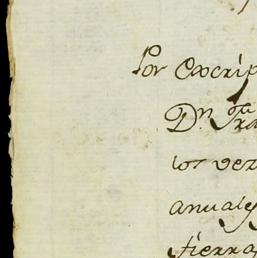 Por Escrip
Dn. Fra
los vez
anuales
tierra